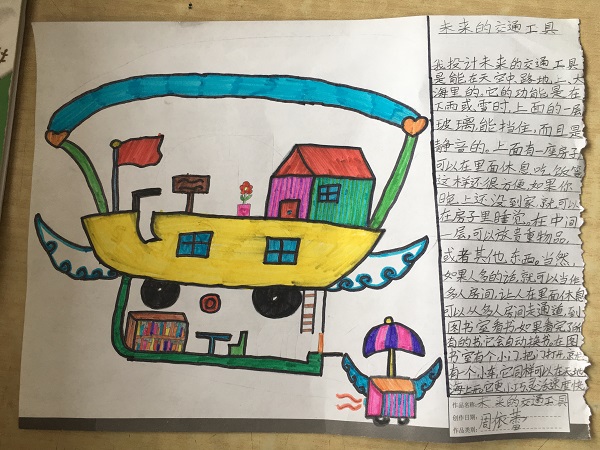 未来的交通工具
我设计未来的交通工具
是能在天空中、路地上、大
海里的。它的功能是在
下雨或雪时,上面的一层
玻璃能挡住,而且是
静音的。上面有一座房子
可以在里面休息、吃饭等
这样还很方便如果你
晚上还没到家,就可以
在房子里睡觉。在中间
一层,可以放贵重物品,
或者其他东西。当然,
如果人多的话,就可以当作
多人房间,让人在里面休息
可以从多人房间走通道,到
图书室看书,如果看完了所
有的书它会自动换书在图
书室有个小门,把门打开,
有个小车,它同样可以在天地
海上
作品名称:未来的交通工具
创作日期:
周依蕾
作品类别: